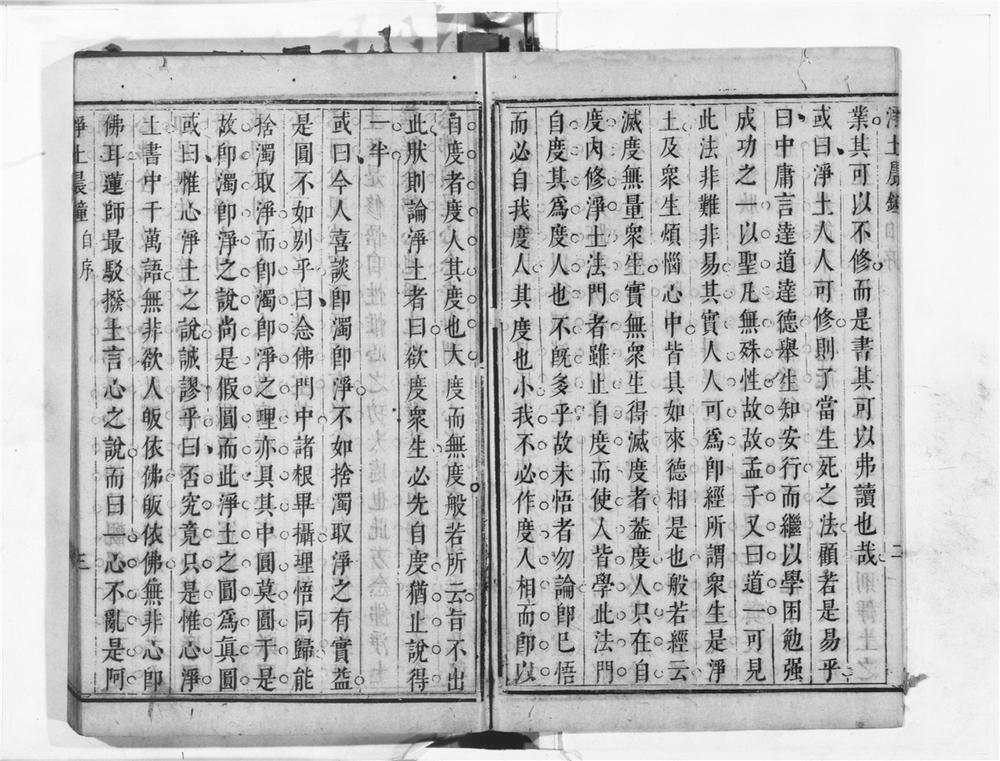 淨土晨鐘 自序 二
業其可以不修而是書其可以弗讀也哉
或曰淨土人人可修則了當生死之法顧若是易乎
曰中庸言達道達德舉生知安行而繼以學困勉强
成功之一以聖凡無殊性故故孟子又曰道一可見
此法非難非易其實人人可爲卽經所謂衆生是淨
土及衆生煩惱心中皆具如來德相是也般若經云
滅度無量衆生實無衆生得滅度者葢度人只在自
度內修淨土法門者雖止自度而使人皆學此法門
自度其爲度人也不旣多乎故未悟者勿論卽已悟
而必自我度人其度也小我不必作度人相而卽以
自度者度人其度也大度而無度般若所云旨不出
此狀則論淨土者曰欲度衆生必先自度猶止說得
一半
或曰今人喜談卽濁卽淨不如捨濁取淨之有實益
是圓不如別乎曰念佛門中諸根畢攝理悟同歸能
捨濁取淨而卽濁卽淨之理亦具其中圓莫圓于是
故卽濁卽淨之說尚是假圓而此淨土之圓爲眞圓
或曰惟心淨土之說誠謬乎曰否究竟只是惟心淨
土書中千萬語無非欲人皈依佛皈依佛無非心卽
佛耳蓮師最駁撥土言心之說而曰一心不亂是阿
淨土晨鐘 自序 三